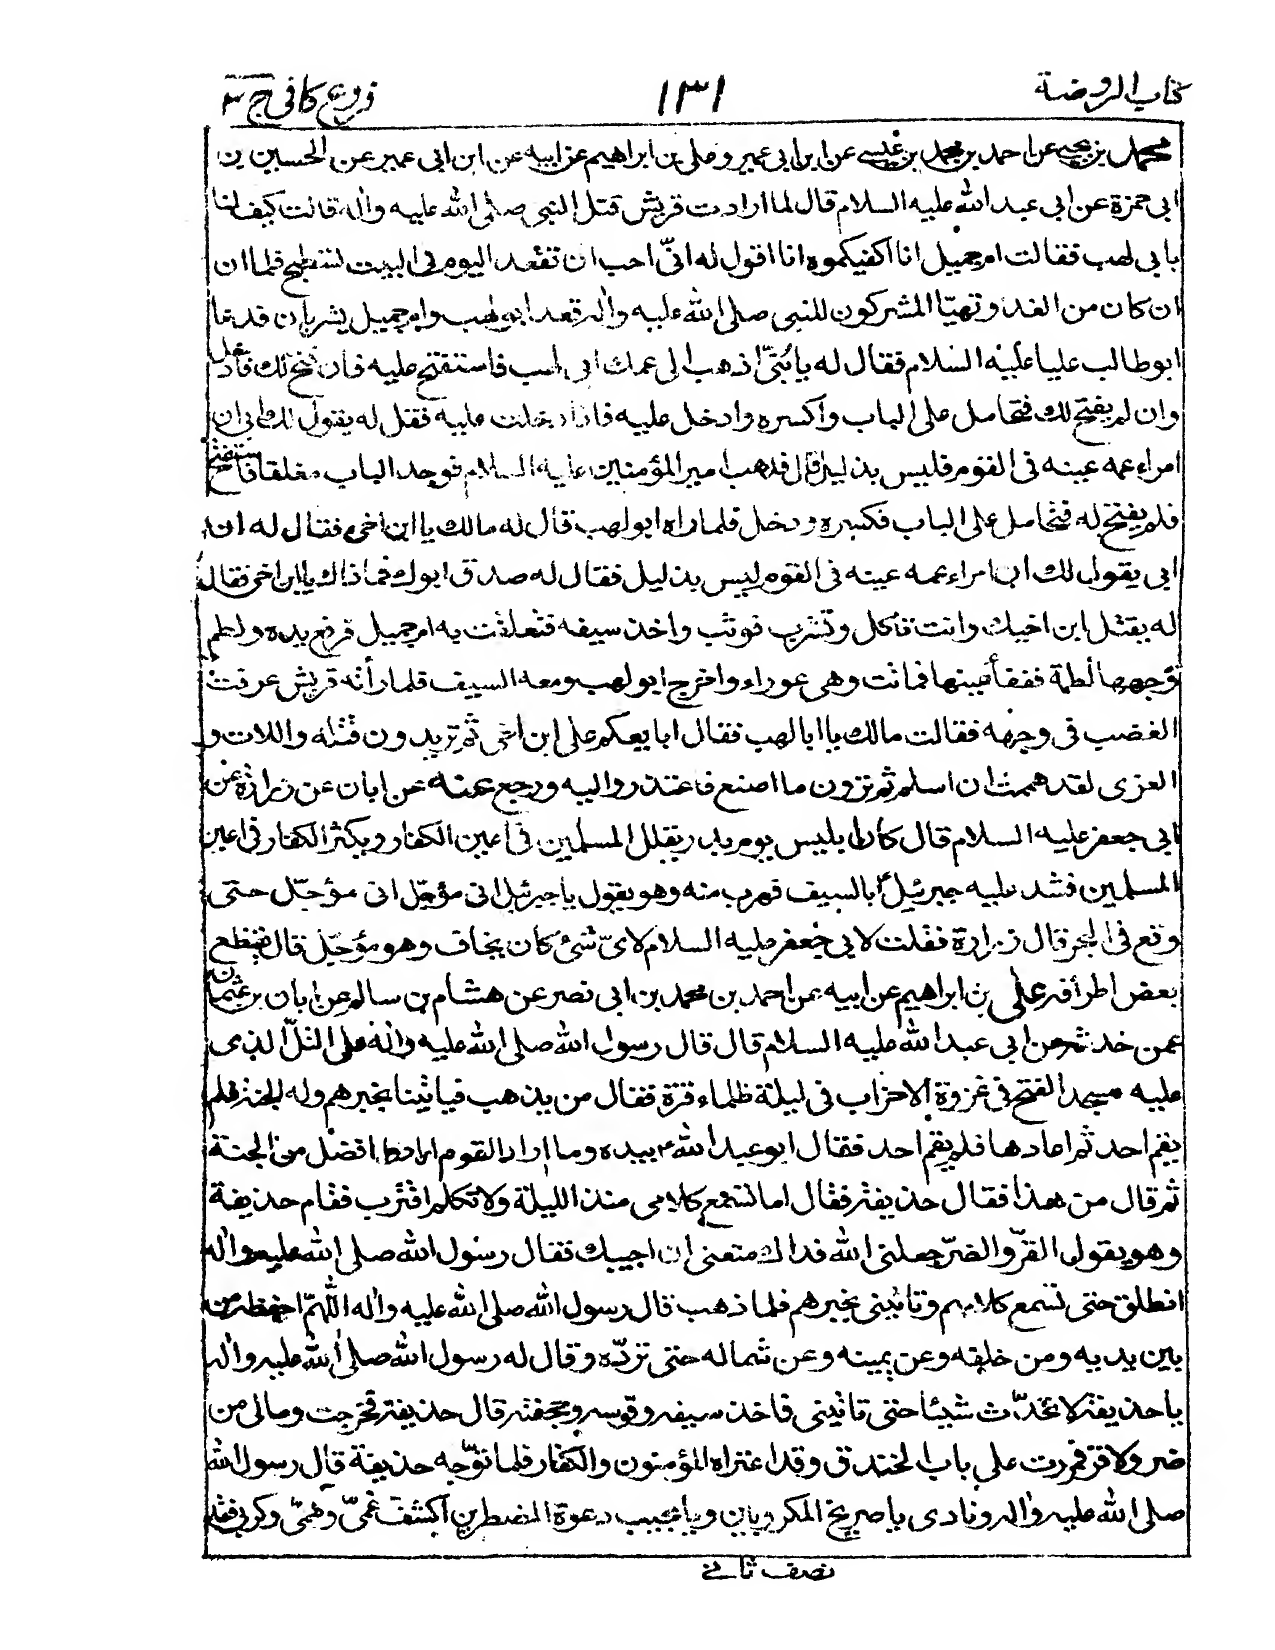 كتاب الروضة ١٣١ فروع كافى ج ٣
محمد بن يحيى عن احمد بن محمد بن عيسى عن ابن ابى عمير وعلى بن ابراهيم عن ابيه عن ابن ابى عمير عن الحسين بن
ابى حمزة عن ابى عبد الله عليه السلام قال لما ارادت قريش قتل النبى صلى الله عليه واله قالت كيف لنا
بابى لهب فقالت ام جميل انا اكفيكموه انا اقول له انّى احب ان تقعد اليوم فى البيت نصطبح فلما ان
ان كان من الغد وتهيّا المشركون للنبى صلى الله عليه واله قعد ابو لهب وام جميل يشربان فدعا
ابو طالب عليا عليه السلام فقال له يا بُنىّ اذهب الى عمك ابى لهب فاستفتح عليه فان فتح لك فادخل
وان لم يفتح لك فتحامل على الباب واكسره وادخل عليه فاذا دخلت عليه فقل له يقول لك ابى ان
امراء عمه عينه فى القوم فليس بذليل قال فذهب امير المؤمنين عليه السلام فوجد الباب مغلقا فاستفتح
فلم يفتح له فتحامل على الباب فكسره ودخل فلما راه ابو لهب قال له مالك يا ابن اخى فقال له ان
ابى يقول لك ان امراء عمه عينه فى القوم ليس بذليل فقال له صدق ابوك فماذاك يا ابن اخى فقال
له يقتل ابن اخيك وانت تاكل وتشرب فوثب واخذ سيفه فتعلقت به ام جميل فرفع يده ولطم
وجهها لطمة ففقأ عينها فماتت وهى عوراء وخرج ابو لهب ومعه السيف فلما رأته قريش عرفت
الغضب فى وجهه فقالت مالك يا ابا لهب فقال ابايعكم على ابن اخى ثم تريدون قتله واللات و
العزى لقد هممت ان اسلم ثم ترون ما اصنع فاعتذروا اليه ورجع عنه عن ابان عن زرارة عن
ابى جعفر عليه السلام قال كان ابليس يوم بدر يقلل المسلمين فى اعين الكفار ويكثر الكفار فى اعين
المسلمين فشد عليه جبرئيل بالسيف فهرب منه وهو يقول يا جبرئيل انى مؤجّل انى مؤجّل حتى
وقع فى البحر قال زرارة فقلت لابى جعفر عليه السلام لاىّ شئ كان يخاف وهو مؤجّل قال يقطع
بعض اطرافه على بن ابراهيم عن ابيه عن احمد بن محمد بن ابى نصر عن هشام بن سالم عن ابان بن عثمان
عمن حدثه عن ابى عبد الله عليه السلام قال قال رسول الله صلى الله عليه واله على التلّ الذى
عليه مسجد الفتح فى غزوة الاحزاب فى ليلة ظلماء قرة فقال من يذهب فياتينا بخبرهم وله الجنة فلم
يقم احد ثم اعادها فلم يقم احد فقال ابو عبد الله ع بيده وما اراد القوم ارادوا افضل من الجنة
ثم قال من هذا فقال حذيفة فقال اما تسمع كلامى منذ الليلة ولا تكلم اقترب فقام حذيفة
وهو يقول القرّ والضرّ جعلنى الله فداك منعنى ان اجيبك فقال رسول الله صلى الله عليه واله
انطلق حتى تسمع كلامهم وتاتينى بخبرهم فلما ذهب قال رسول الله صلى الله عليه واله اللهمّ احفظه من
بين يديه ومن خلفه وعن يمينه وعن شماله حتى تردّه وقال له رسول الله صلى الله عليه واله
يا حذيفة لا تحدّث شيئا حتى تاتينى فاخذ سيفه وقوسه وحجفته قال حذيفة فخرجت ومالى من
ضر ولا قر فمررت على باب الخندق وقد اعتراه المؤمنون والكفار فلما توّجه حذيفة قال رسول الله
صلى الله عليه واله ونادى يا صريخ المكروبين ويا مجيب دعوة المضطرين اكشف غمىّ وهمىّ وكربى فقد
نصف ثانى